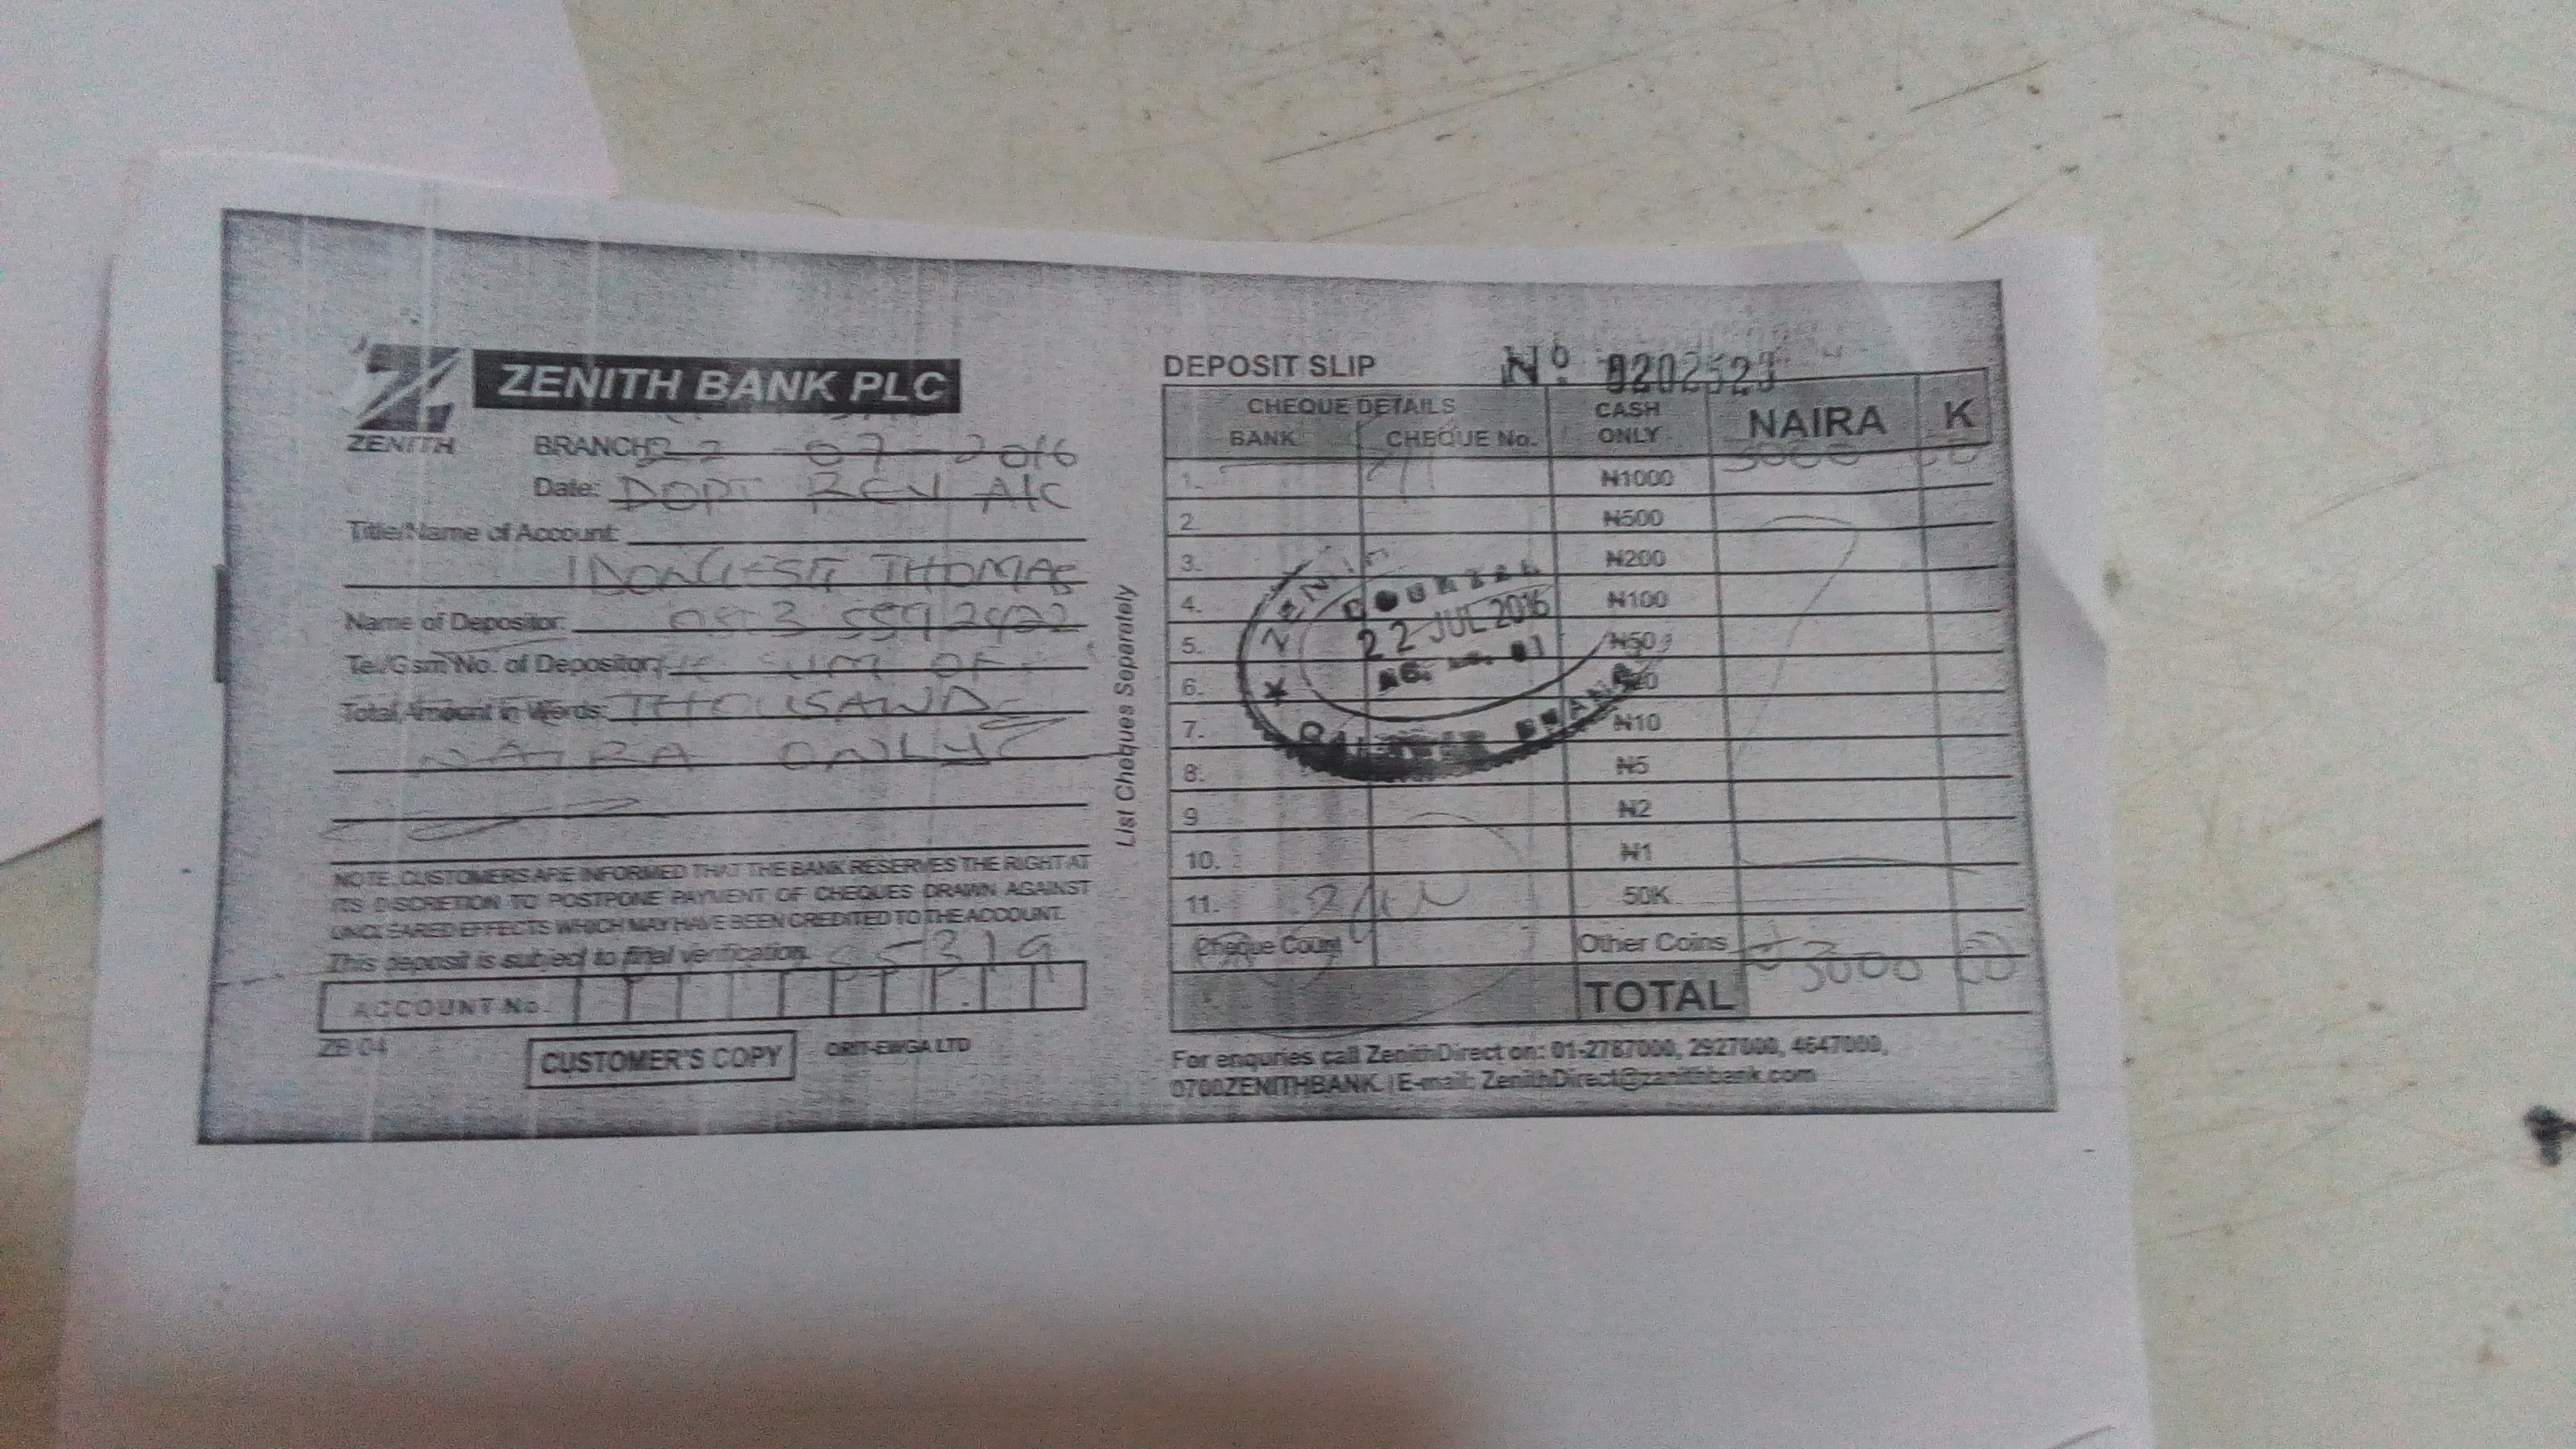 ZENITH BANK PLC
ZENITH
BRANCH 22-07-2016
Date: DOPT REV A/C
Title/Name of Account:
THOMAS
Name of Depositor:
Tel/Gsm No. of Depositor: SUM OF
Total Amount in Words: THOUSAND
NAIRA ONLY
NOTE: CUSTOMERS ARE INFORMED THAT THE BANK RESERVES THE RIGHT AT
ITS DISCRETION TO POSTPONE PAYMENT OF CHEQUES DRAWN AGAINST
UNCLEARED EFFECTS WHICH MAY HAVE BEEN CREDITED TO THE ACCOUNT.
This deposit is subject to final verification.
ACCOUNT No.
ZB 04
CUSTOMER'S COPY
ORIT-EWGA LTD
List Cheques Separately
DEPOSIT SLIP Nº
CHEQUE DETAILS CASH ONLY NAIRA K
BANK CHEQUE No.
1. ₦1000 3000 00
2. ₦500
3. ₦200
4. ₦100
5. ₦50
6. ₦20
7. ₦10
8. ₦5
9 ₦2
10. ₦1
11. 50K
Cheque Count Other Coins
TOTAL ₦3000 00
ZENITH
22 JUL 2016
BRANCH
For enquries call ZenithDirect on: 01-2787000, 2927000, 4647000,
0700ZENITHBANK. | E-mail: ZenithDirect@zenithbank.com